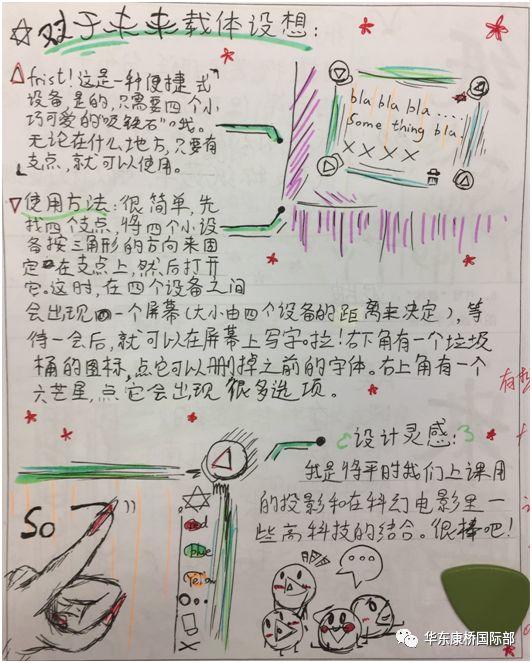 ☆对于未来载体设想:
△frist!这是一种便捷式
设备,是的,只需要四个小
巧可爱的"吸铁石"哦。
无论在什么地方,只要有
支点,就可以使用。
bla bla bla ....
Some thing bla.
XXXX
▽使用方法:很简单,先
找四个支点,将四个小设
备按三角形的方向来固
定在支点上,然后打开
它。这时,在四个设备之间
会出现一个屏幕(大小由四个设备的距离来决定),等
待一会后,就可以在屏幕上写字啦!右下角有一个垃圾
桶的图标,点它可以删掉之前的字体。右上角有一个
六芒星,点它会出现很多选项。
设计灵感:
我是将平时我们上课用
的投影和在科幻电影里一
些高科技的结合。很棒吧!
So
red
blue
Yellow
X
华东康桥国际部